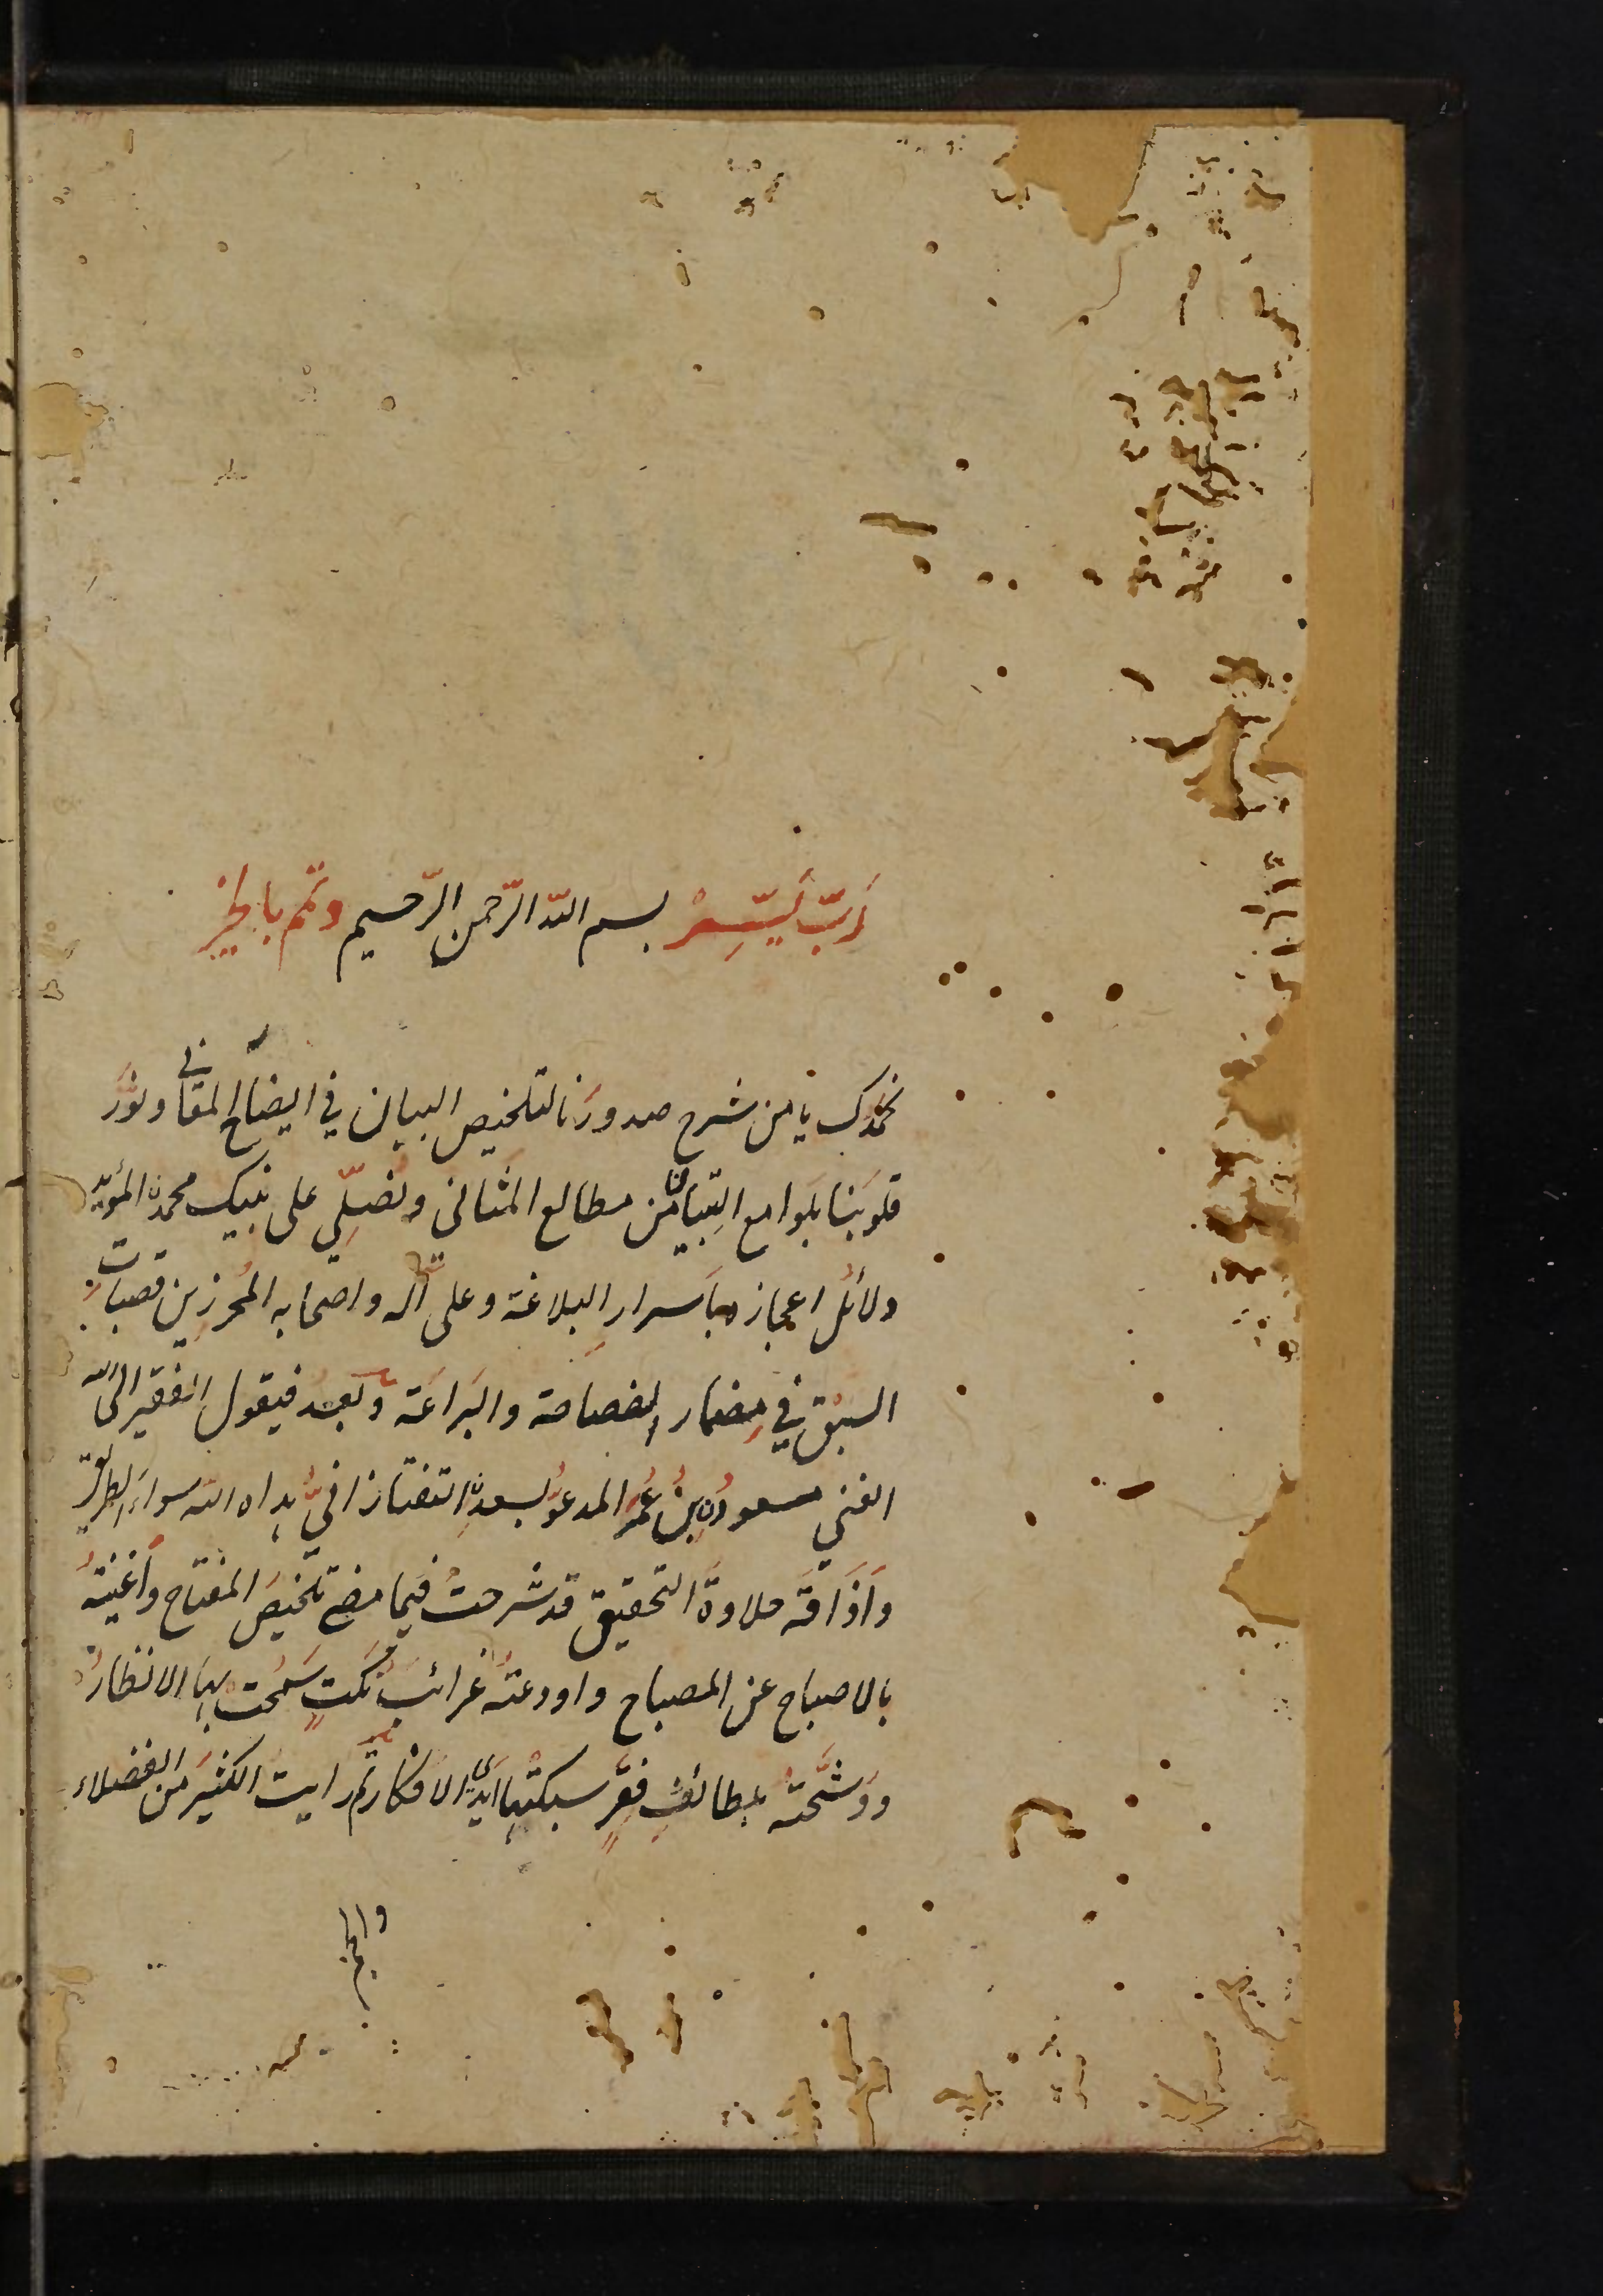 رَبِّ يَسِّرْ بسم الله الرّحمن الرّحيم وتمّم بالخير
نحمدك يا من شرح صدورَنا لتلخيص البيان في ايضاح المعاني ونوَّر
قلوبَنا بلَوامع التِبيان من مطالع المثاني ونُصلّي على نبيك محمد المؤيّد
دلائلُ اعجازه باَسرارِ البلاغة وعلى آله واصحابه المُحرِزين قصباتِ
السبْق في مِضمار الفصاحة والبَراعَة وبعدُ فيقول الفقير الى الله
الغني مسعودُ بنُ عُمَرَ المدعوُّ بسعدِ التفتازانيُّ هداه الله سواءَ الطريق
وَاَذَاقَه حلاوةَ التحقيق قد شرحتُ فيما مضى تلخيصَ المفتاح وَاَغنيتُه
بالاصباح عن المصباح واودعتُه غرائبَ نُكَتٍ سَمُحت بها الانظارُ
ووَشَّحتُه بلطائفِ فِقَرٍ سبكتْها ايدي الافكار ثم رايت الكثيرَ من الفضلاء
والجم